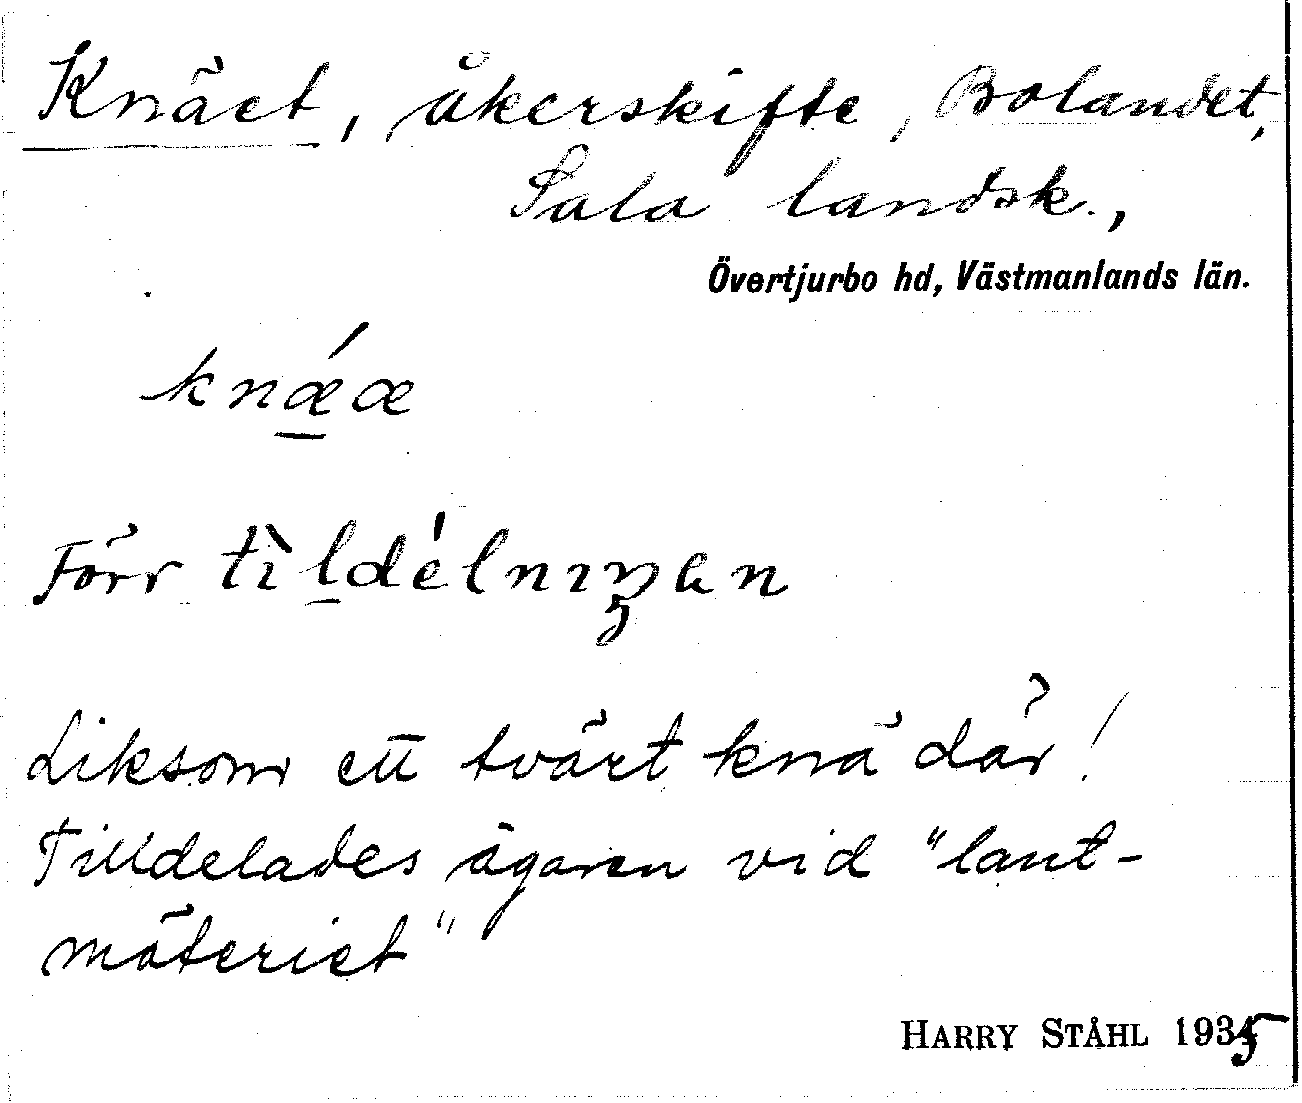 Knäet, åkerskifte, Bolandet,
Sala landsk.,
Övertjurbo hd, Västmanlands län.
knǽæ
Förr tìldélnıŋen
Liksom ett tvärt knä där!
Tilldelades ägaren vid "lant-
mäteriet"
HARRY STÅHL 1935